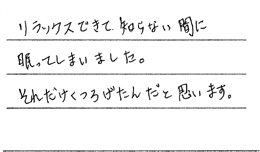 リラックスできて知らない間に
眠ってしまいました。
それだけくつろげたんだと思います。